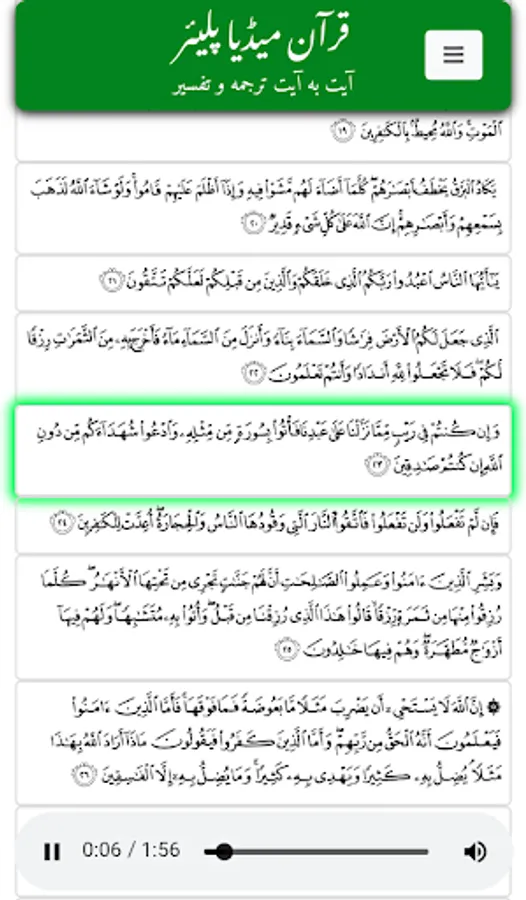 قرآن میڈیا پلیئر
آیت به آیت ترجمه و تفسیر
ٱلْمَوْتِ ۚ وَٱللَّهُ مُحِيطٌۢ بِٱلْكَـٰفِرِينَ ١٩
يَكَادُ ٱلْبَرْقُ يَخْطَفُ أَبْصَـٰرَهُمْ ۖ كُلَّمَآ أَضَآءَ لَهُم مَّشَوْا۟ فِيهِ وَإِذَآ أَظْلَمَ عَلَيْهِمْ قَامُوا۟ ۚ وَلَوْ شَآءَ ٱللَّهُ لَذَهَبَ
بِسَمْعِهِمْ وَأَبْصَـٰرِهِمْ ۚ إِنَّ ٱللَّهَ عَلَىٰ كُلِّ شَىْءٍ قَدِيرٌ ٢٠
يَـٰٓأَيُّهَا ٱلنَّاسُ ٱعْبُدُوا۟ رَبَّكُمُ ٱلَّذِى خَلَقَكُمْ وَٱلَّذِينَ مِن قَبْلِكُمْ لَعَلَّكُمْ تَتَّقُونَ ٢١
ٱلَّذِى جَعَلَ لَكُمُ ٱلْأَرْضَ فِرَٰشًا وَٱلسَّمَآءَ بِنَآءً وَأَنزَلَ مِنَ ٱلسَّمَآءِ مَآءً فَأَخْرَجَ بِهِۦ مِنَ ٱلثَّمَرَٰتِ رِزْقًا
لَّكُمْ ۖ فَلَا تَجْعَلُوا۟ لِلَّهِ أَندَادًا وَأَنتُمْ تَعْلَمُونَ ٢٢
وَإِن كُنتُمْ فِى رَيْبٍ مِّمَّا نَزَّلْنَا عَلَىٰ عَبْدِنَا فَأْتُوا۟ بِسُورَةٍ مِّن مِّثْلِهِۦ وَٱدْعُوا۟ شُهَدَآءَكُم مِّن دُونِ
ٱللَّهِ إِن كُنتُمْ صَـٰدِقِينَ ٢٣
فَإِن لَّمْ تَفْعَلُوا۟ وَلَن تَفْعَلُوا۟ فَٱتَّقُوا۟ ٱلنَّارَ ٱلَّتِى وَقُودُهَا ٱلنَّاسُ وَٱلْحِجَارَةُ ۖ أُعِدَّتْ لِلْكَـٰفِرِينَ ٢٤
وَبَشِّرِ ٱلَّذِينَ ءَامَنُوا۟ وَعَمِلُوا۟ ٱلصَّـٰلِحَـٰتِ أَنَّ لَهُمْ جَنَّـٰتٍ تَجْرِى مِن تَحْتِهَا ٱلْأَنْهَـٰرُ ۖ كُلَّمَا
رُزِقُوا۟ مِنْهَا مِن ثَمَرَةٍ رِّزْقًا ۙ قَالُوا۟ هَـٰذَا ٱلَّذِى رُزِقْنَا مِن قَبْلُ ۖ وَأُتُوا۟ بِهِۦ مُتَشَـٰبِهًا ۖ وَلَهُمْ فِيهَآ
أَزْوَٰجٌ مُّطَهَّرَةٌ ۖ وَهُمْ فِيهَا خَـٰلِدُونَ ٢٥
۞ إِنَّ ٱللَّهَ لَا يَسْتَحْىِۦٓ أَن يَضْرِبَ مَثَلًا مَّا بَعُوضَةً فَمَا فَوْقَهَا ۚ فَأَمَّا ٱلَّذِينَ ءَامَنُوا۟
فَيَعْلَمُونَ أَنَّهُ ٱلْحَقُّ مِن رَّبِّهِمْ ۖ وَأَمَّا ٱلَّذِينَ كَفَرُوا۟ فَيَقُولُونَ مَاذَآ أَرَادَ ٱللَّهُ بِهَـٰذَا
مَثَلًا ۘ يُضِلُّ بِهِۦ كَثِيرًا وَيَهْدِى بِهِۦ كَثِيرًا ۚ وَمَا يُضِلُّ بِهِۦٓ إِلَّا ٱلْفَـٰسِقِينَ ٢٦
0:06 / 1:56